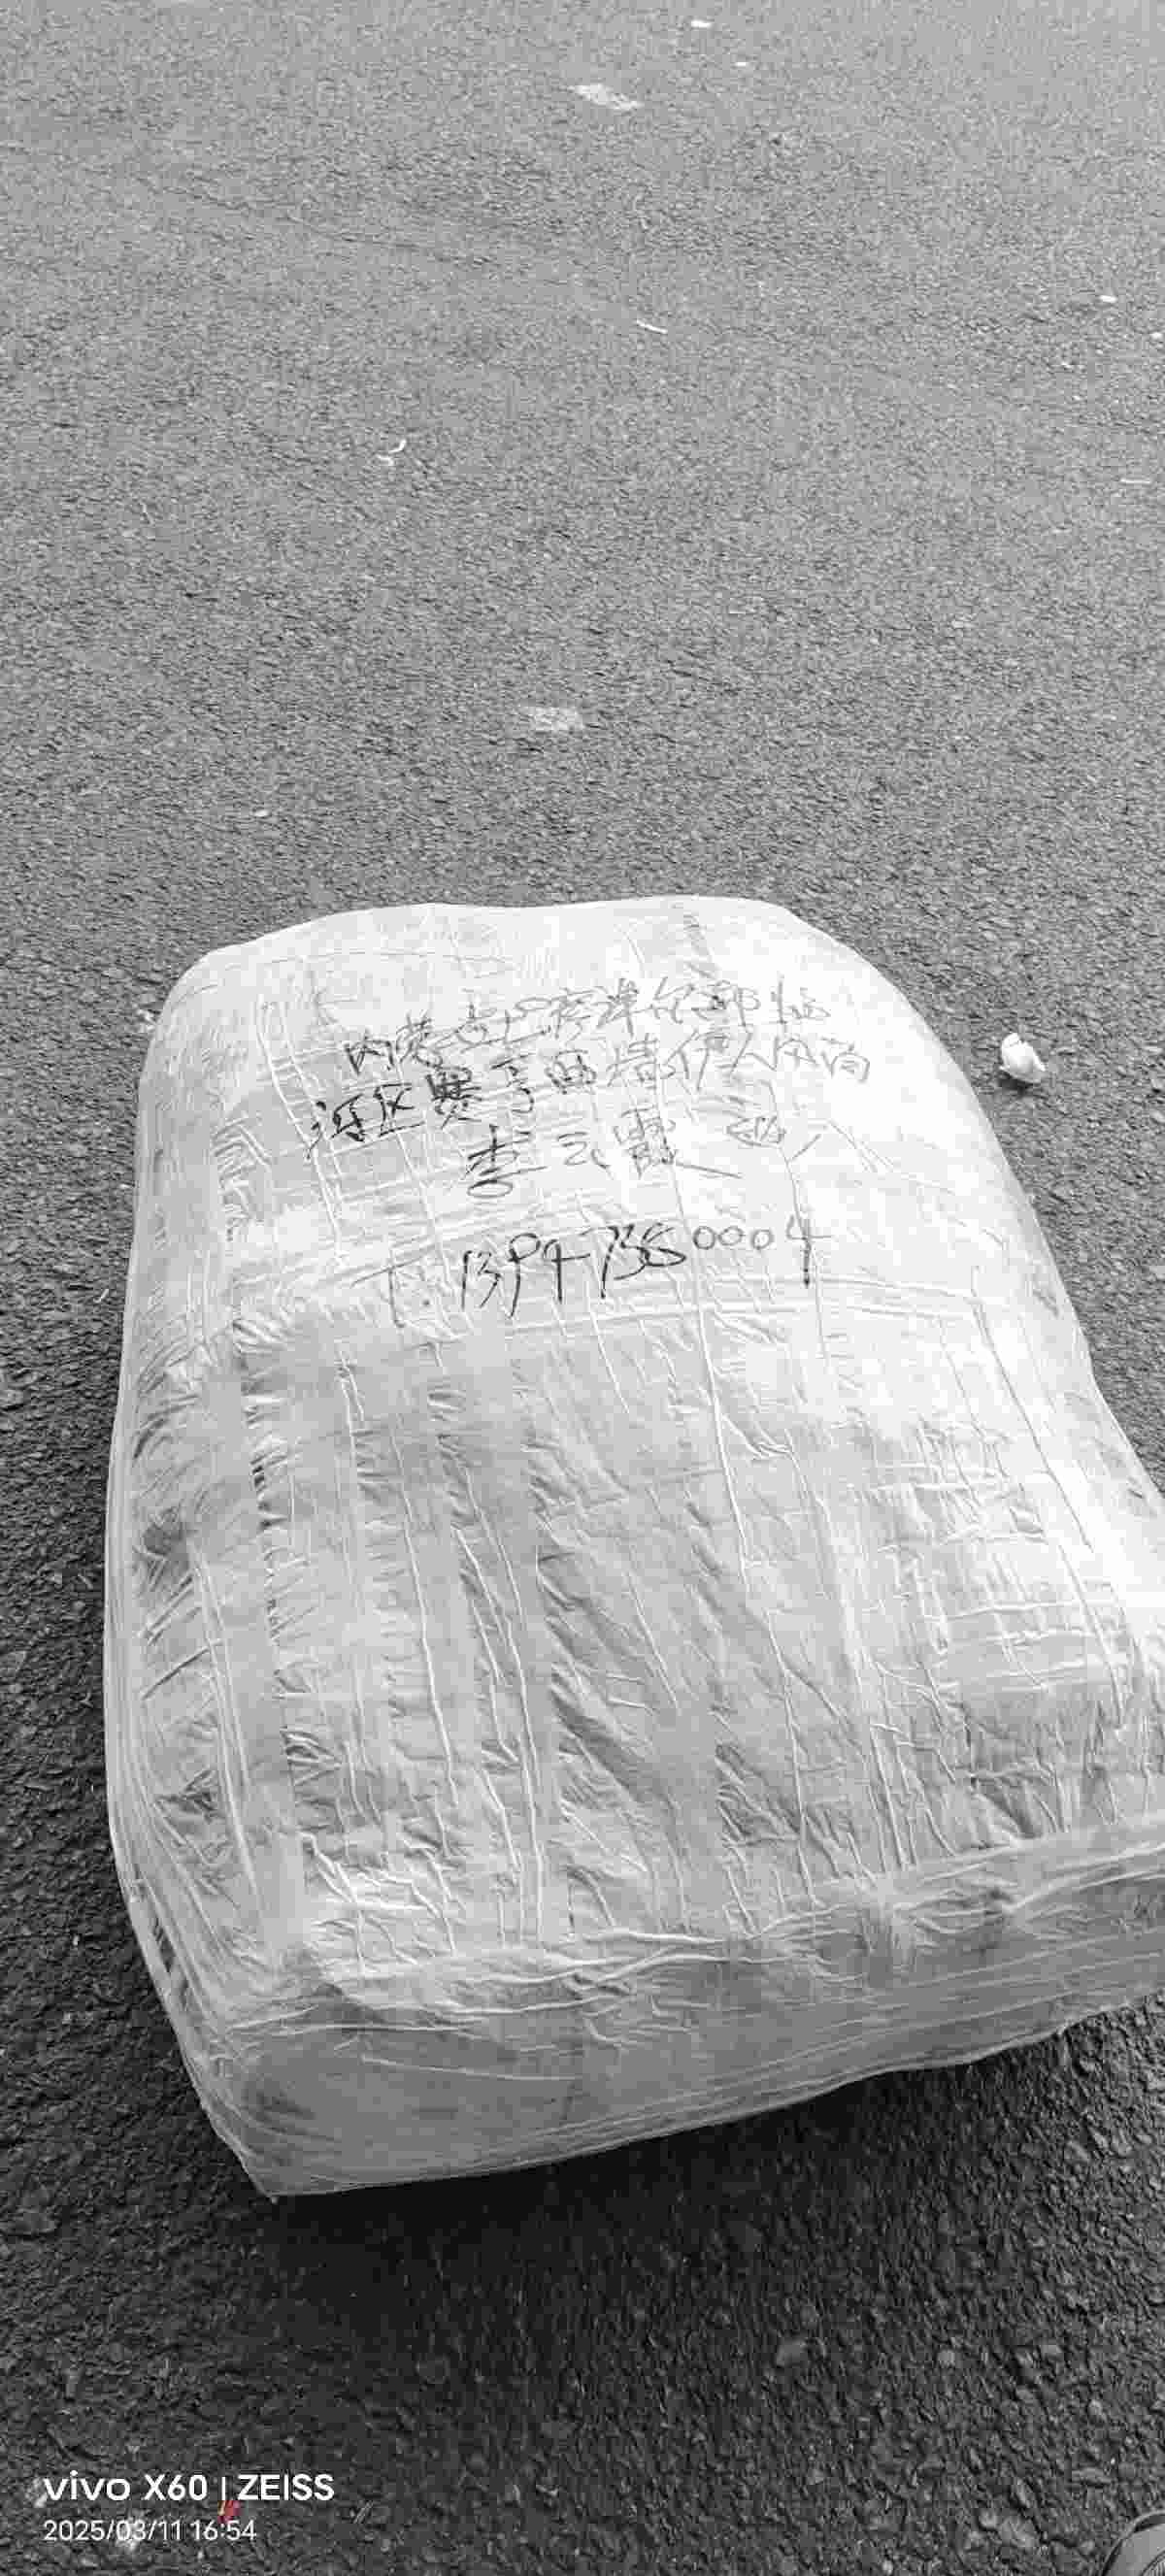 内蒙古巴彦淖尔市临
河区赛丰四塔伊人风尚
李云霞
T:13947380004
vivo X60 | ZEISS
2025/03/11 16:54